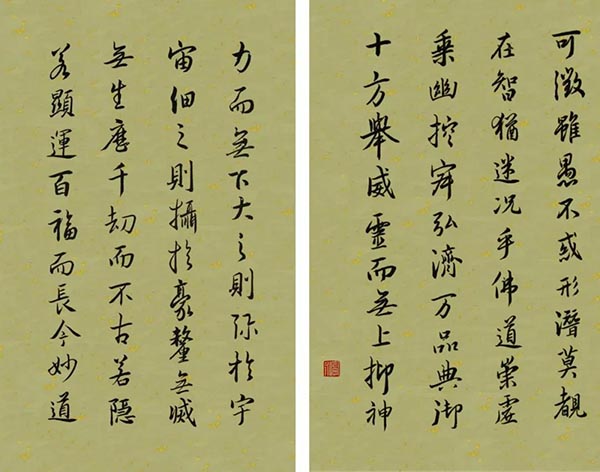 可徵雖愚不惑形潛莫覩
在智猶迷况乎佛道崇虛
乘幽控寂弘濟万品典御
十方舉威靈而無上抑神
力而無下大之則弥於宇
宙細之則攝於豪釐無滅
無生歷千劫而不古若隱
若顯運百福而長今妙道